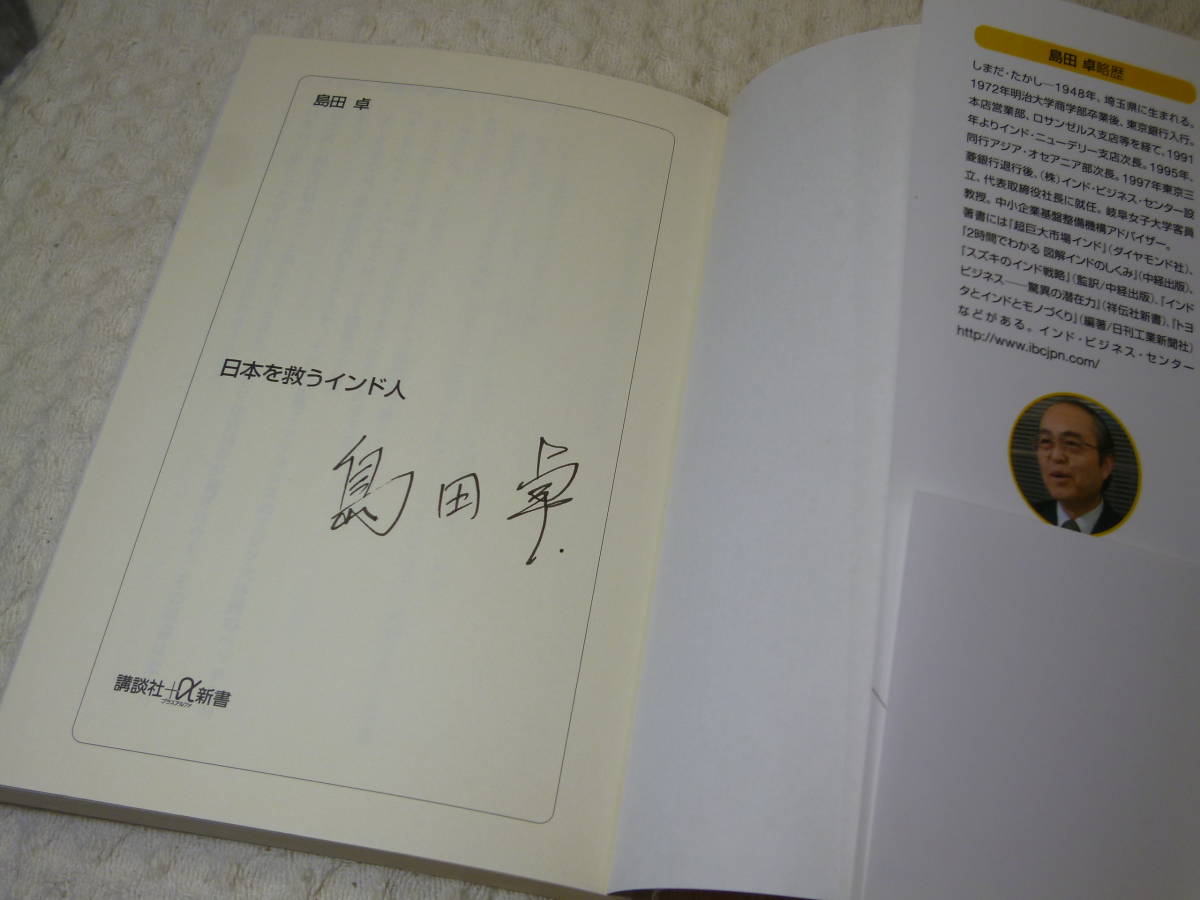 島田 卓
日本を救うインド人
島田卓.
講談社+α新書
プラスアルファ
島田 卓略歴
しまだ・たかし―1948年、埼玉県に生まれる。
1972年明治大学商学部卒業後、東京銀行入行。
本店営業部、ロサンゼルス支店等を経て、1991
年よりインド・ニューデリー支店次長。1995年、
同行アジア・オセアニア部次長。1997年東京三
菱銀行退行後、(株)インド・ビジネス・センター設
立、代表取締役社長に就任。岐阜女子大学客員
教授。中小企業基盤整備機構アドバイザー。
著書には『超巨大市場インド』(ダイヤモンド社)、
『2時間でわかる 図解インドのしくみ』(中経出版)、
『スズキのインド戦略』(監訳/中経出版)、『インド
ビジネス――驚異の潜在力』(祥伝社新書)、『トヨ
タとインドとモノづくり』(編著/日刊工業新聞社)
などがある。インド・ビジネス・センター
http://www.ibcjpn.com/